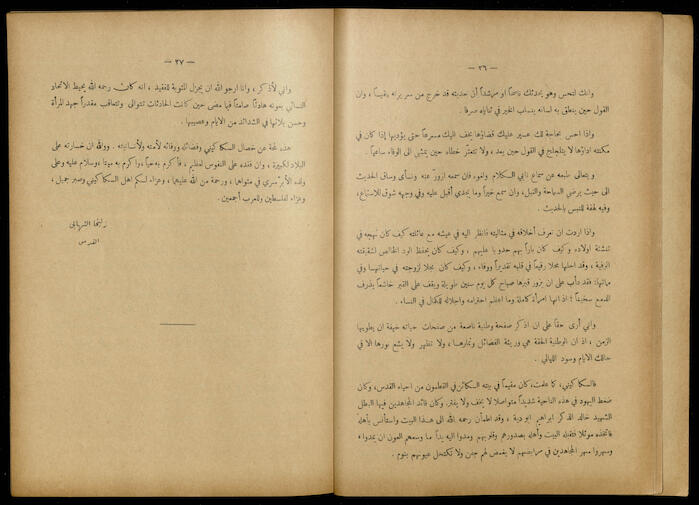 — ٢٦ —
وانك لتحس وهو يحدثك ناصحاً او مرشداً أن حديثه قد خرج من سريرته بقيناً، وان
القول حين ينطق به لسانه ينساب الخير في ثناياه صرفا.
واذا احس بحاجة لك عسير عليك قضاؤها يخف اليك مسرعاً حتى يؤديها إذا كان في
مكنته اداؤها لا يتلجلج في القول حين يعد، ولا تتعثر خطاه حين يمشي الى الوفاء ساعياً.
ويتعالى طبعه عن سماع نابي السكلام ولغو، فان سمعه ازور عنه ونسأى وساق الحديث
الى حيث يرضي الديباجة والنبل، وان سمع خيراً وما يجدي أقبل عليه وفي وجهه شوق للاستماع،
وفيه لهفة للتبس بالحديث.
واذا اردت ان تعرف أخلاقه في مثاليته فانظر اليه في عيشه مع عائلته كيف كان نهجه في
تنشئة اولاده وكيف كان باراً بهم حدوبا عليهم، وكيف كان يحفظ الود الخالص لشقيقته
الوفية، وقد احلها محلا رفيعاً في قلبه تقديراً ووفاء، وكيف كان مجلا لزوجته في حياتهسا وفي
مماتها: فقد دأب على ان يزور قبرها صباح كل يوم سنين طويلة ويقف على القبر خاشعاً يذرف
الدمع سخيناً؛ اذ انها امرأة كاملة وما اعظم احترامه واجلاله للكمال في النساء.
واني أرى حقاً على ان اذكر صفحة وطنية ناصعة من صفحات حياته خيفة ان يطويها
الزمن، اذ ان الوطنية الحقة هي وريثة الفضائل وثمارهسا، ولا تظهر ولا يشع نورها الا في
حالك الايام وسود الليالي.
فالسكاكيني، كما علمت، كان مقيماً في بيته السكائن في القطمون من احياء القدس، وكان
ضغط اليهود في هذه الناحية شديداً متواصلا لا يخف ولا يفتر، وكان قائد المجاهدين فيها البطل
الشهيد خالد الذكر ابراهيم ابو دية، وقد اطمأن رحمه الله الى هسذا البيت واستأنس بأهله
فاتخذه موئلا فتقبله البيت وأهله بصدورهم وقلوبهم ومدوا اليه يداً مسا وسعهم العون ان يمدوا،
وسهروا سهر المجاهدين في مرابضهم لا يغمض لهم جفن ولا تكتحل عيونهم بنوم.
— ٢٧ —
واني لأذكر، وانا ارجو الله ان يجزل المثوبة للفقيد، انه كان رحمه الله يحيط الاتحاد
النسائي بعونه هادئاً صامتاً فيما مضى حين كانت الحادثات تتوالى وتتعاقب مقدراً جهد المرأة
وحسن بلائها في الشدائد من الايام وعصيبها.
هذه لمحة عن خصال السكاكيني وفضائله ورقائه لأمته ولأنسانيته. ووالله ان خسارته على
البلاد لكبيرة، وان فقده على النفوس لعظيم، فأكرم به حياً، وأكرم به ميتاً، وسلام عليه وعلى
ولده الأبر سري في مثواهما، ورحمة من الله عليهما، وعزاء لسكم اهل السكاكيني وصبر جميل،
وعزاء لفلسطين وللعرب أجمعين.
زليخا الشهابي
القدس